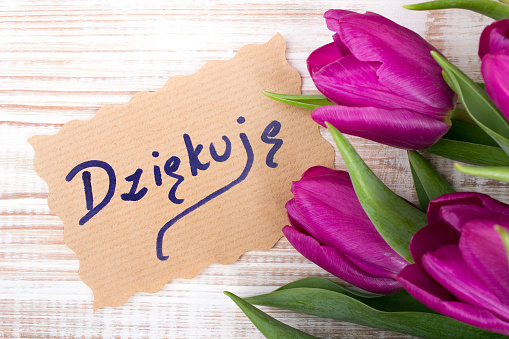 Dziękuję